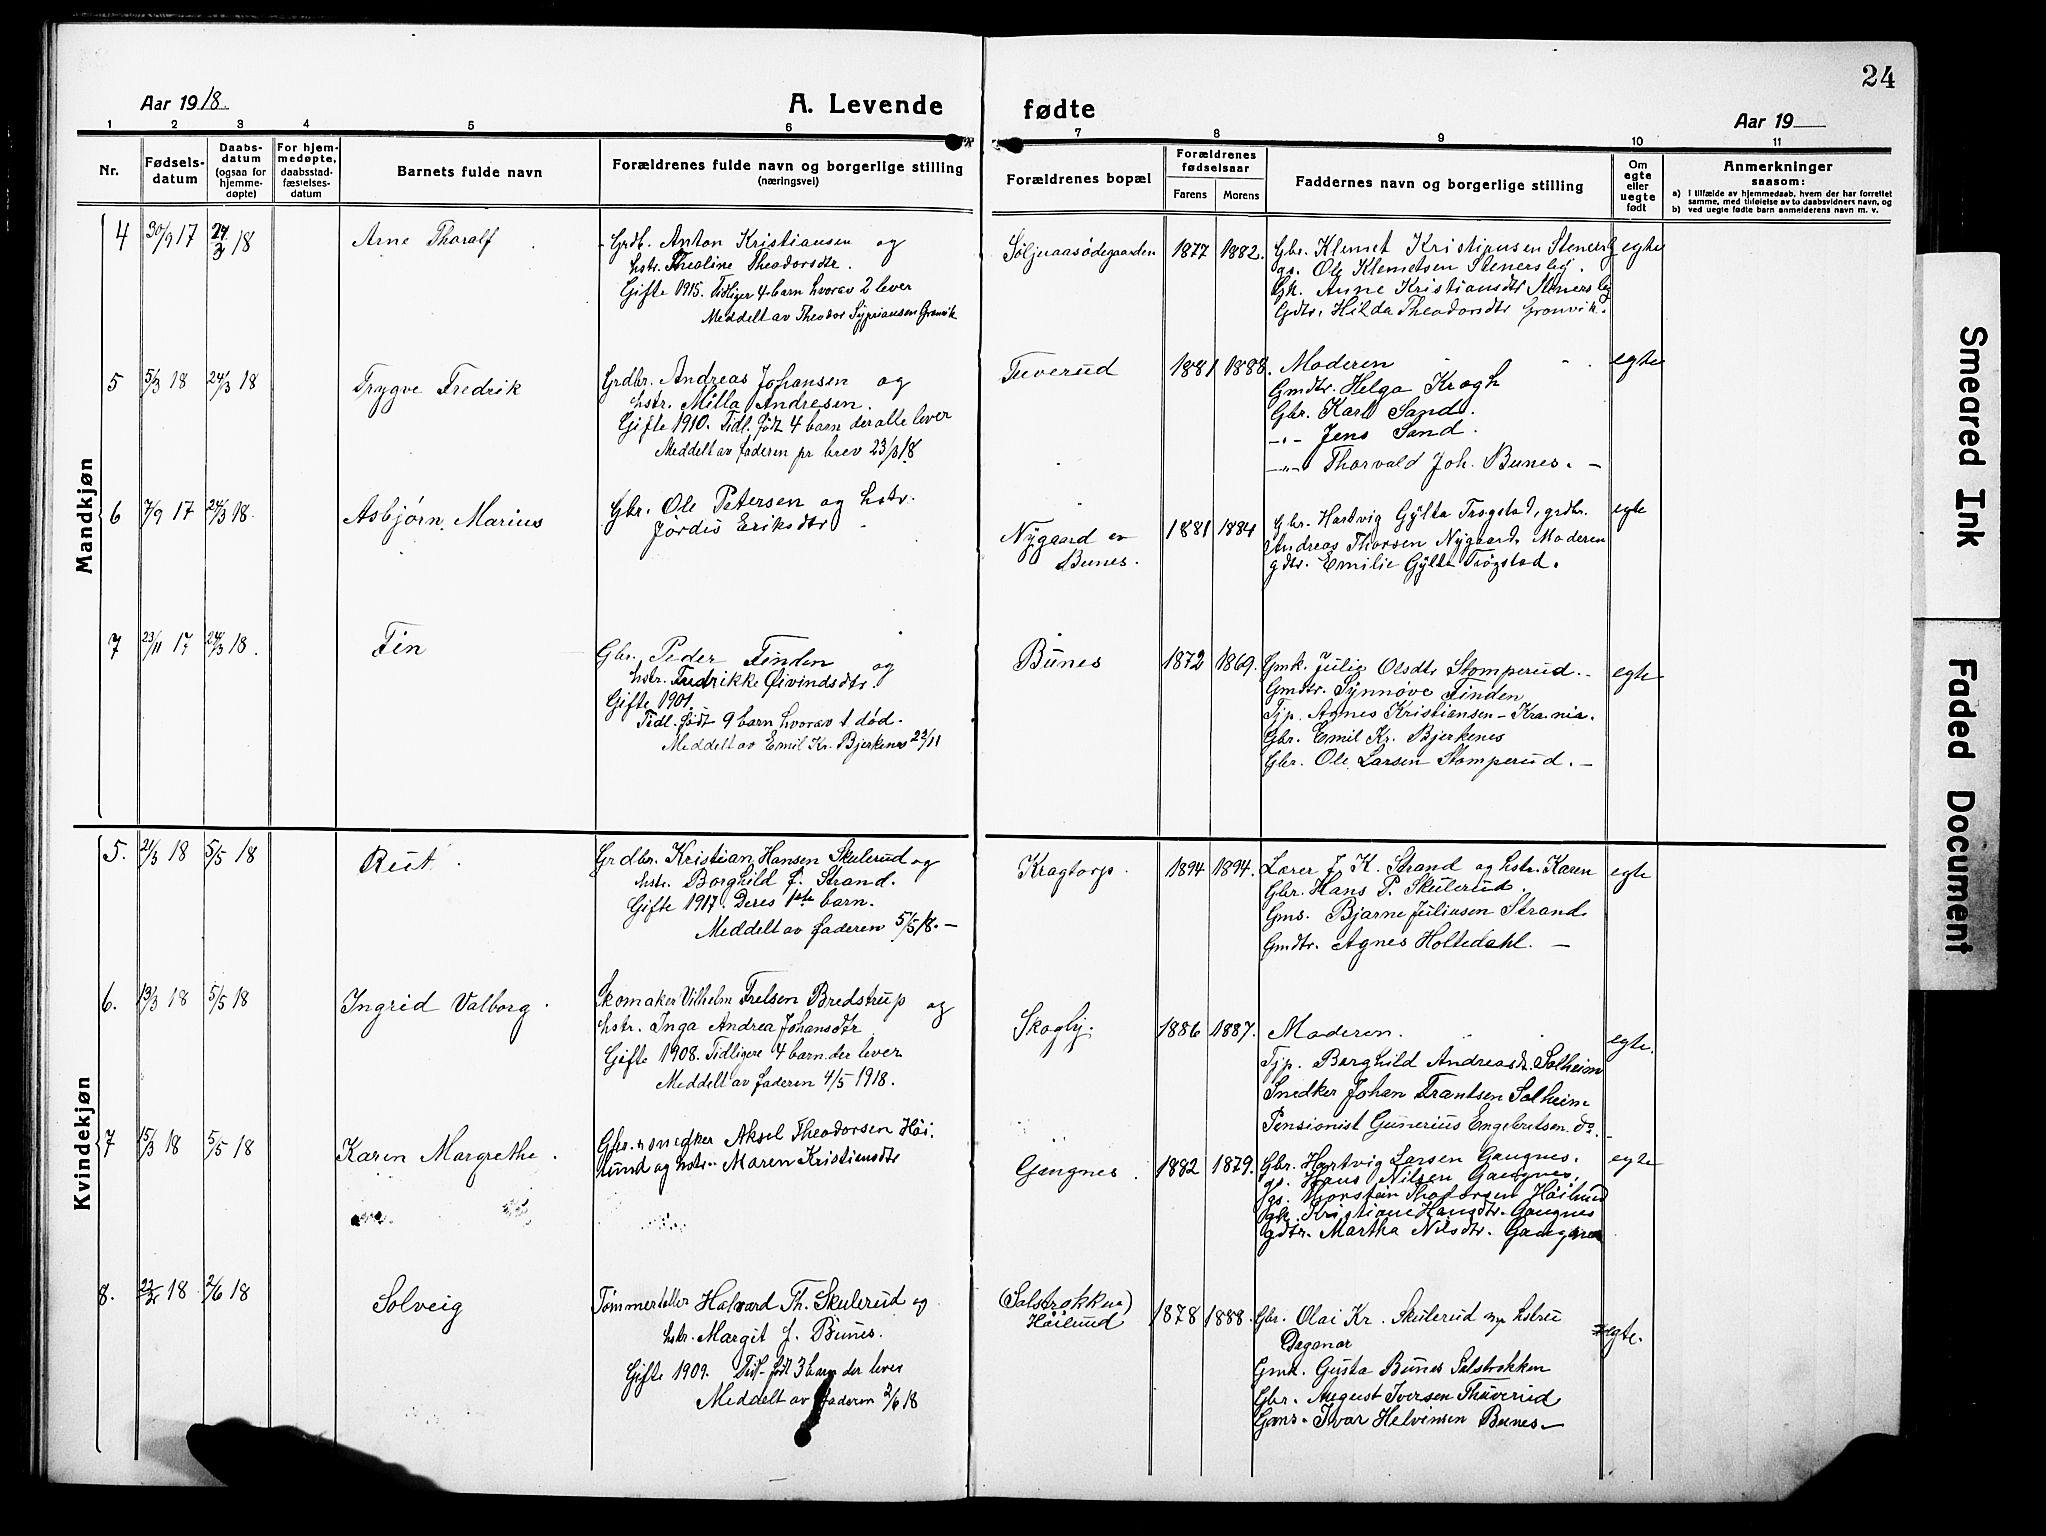 24
Aar 1918
A. Levende fødte
Aar 19
1 2 3 4 5 6 7 8 9 10 11
Nr.
Fødsels-
datum
Daabs-
datum
(ogsaa for
hjemme-
døpte)
For hjem-
medøpte,
daabsstad-
fæstelses-
datum
Barnets fulde navn
Forældrenes fulde navn og borgerlige stilling
(næringsvei)
Forældrenes bopæl
Forældrenes
fødselsaar
Farens Morens
Faddernes navn og borgerlige stilling
Om
egte
eller
uegte
født
Anmerkninger
saasom:
a) I tilfælde av hjemmedaab, hvem der har forrettet
samme, med tilføielse av to daabsvidners navn, og
b) ved uegte fødte barn anmelderens navn m. v.
Mandkjøn
4 30/9 17 24/3 18 Arne Thoralf
Grdb. Anton Kristiansen og
hstr. Theoline Theodorsdtr.
Gifte 1915. Tidliger 4 barn hvorav 2 lever
Meddelt av Theodor Sypriansen Grønvik
1877 1882.
Gbr. Klemet Kristiansen Stenersby
gs. Ole Klemetsen Stenersby.
Gk. Anne Kristiansdtr Stenersby
Gdtr. Hilda Theodorsdtr Grønvik.
egte
5 5/3 18 24/3 18 Trygve Fredrik
Grdbr. Andreas Johansen og
hstr. Milla Andresen.
Gifte 1910. Tidl. født 4 barn der alle lever
Meddelt av faderen pr brev 23/3 18
Tuverud
1881 1888.
Moderen
Gmdtr. Helga Krogh
Gbr. Karl Sand.
-"- Jens Sand.
-"- Thorvald Joh. Bunes. -
egte
6 7/9 17 24/3 18. Asbjørn Marius
Gbr. Ole Petersen og hstr.
Jørdis Eriksdtr
Nygaard
Bunes.
1881 1884
Gbr. Hartvig Gylta Trøgstad, grdbr.
Andreas Thorsen Nygaard, Moderen
gdtr. Emilie Gylta Trøgstad.
egte
7 23/11 17 24/3 18. Fin
Gbr. Peder Finden og
hstr. Fredrikke Øivindsdtr.
Gifte 1901.
Tidl. født 9 barn hvorav 1 død.
Meddelt av Emil Kr. Bjerkenes 23/11
Bunes
1872 1869.
Gmk. Julie Olsdtr Stomperud. -
Gmdtr. Synnøve Finden
Tjp. Agnes Kristiansen - Kra.nia.
Gbr. Emil Kr. Bjerkenes
Gbr. Ole Larsen Stomperud. -
egte
Kvindekjøn
5. 21/3 18 5/5 18 Rut.
Grdbr. Kristian Hansen Skulerud og
hstr. Borghild J. Strand.
Gifte 1917. Deres 1ste barn.
Meddelt av faderen 5/5 18. -
Kragtorp.
1894 1894.
Lærer J. K. Strand og hstr. Karen
Gbr. Hans P. Skulerud.
Gms. Bjarne Juliusen Strand
Gmdtr. Agnes Holtedahl. -
egte
6. 13/3 18 5/5 18 Ingrid Valborg.
Skomaker Vilhelm Frelsen Bredstrup og
hstr. Inga Andrea Johansdtr
Gifte 1908. Tidligere 4 barn der lever
Meddelt av faderen 4/5 1918.
Skogly.
1886 1887.
Moderen.
Tjp. Borghild Andreasdt. Solheim
Snedker Johan Frantsen Solheim
Pensionist Gunerius Engebretsen do.
egte.
7 15/3 18 5/5 18 Karen Margrethe.
Gbr. snedker Aksel Theodorsen Høi-
lund og hstr. Maren Kristiansdtr
Gangnes.
1882 1879.
Gbr. Hartvig Larsen Gangnes.
gs. Hans Nilsen Gangnes.
gs. Thorstein Thodorsen Høilund
gk. Kristiane Hansdtr. Gangnes
gdtr. Martha Nilsdtr. Gangnes
egte
8. 18 2/6 18 Solveig
Tømmertæller Halvard Th. Skulerud og
hstr. Margit J. Bunes.
Gifte 1909. Tidl. født 3 barn der lever
Meddelt av faderen 2/6 18
(Salstrokken)
Høilund
1878 1888.
Gbr. Olai Kr. Skulerud hstru
Dagmar
Gmk. Gusta Bunes Salstrokken
Gbr. August Iversen Thuverud
Gms. Ivar Helvinsen Bunes -
egte.
Smeared Ink
Faded Document